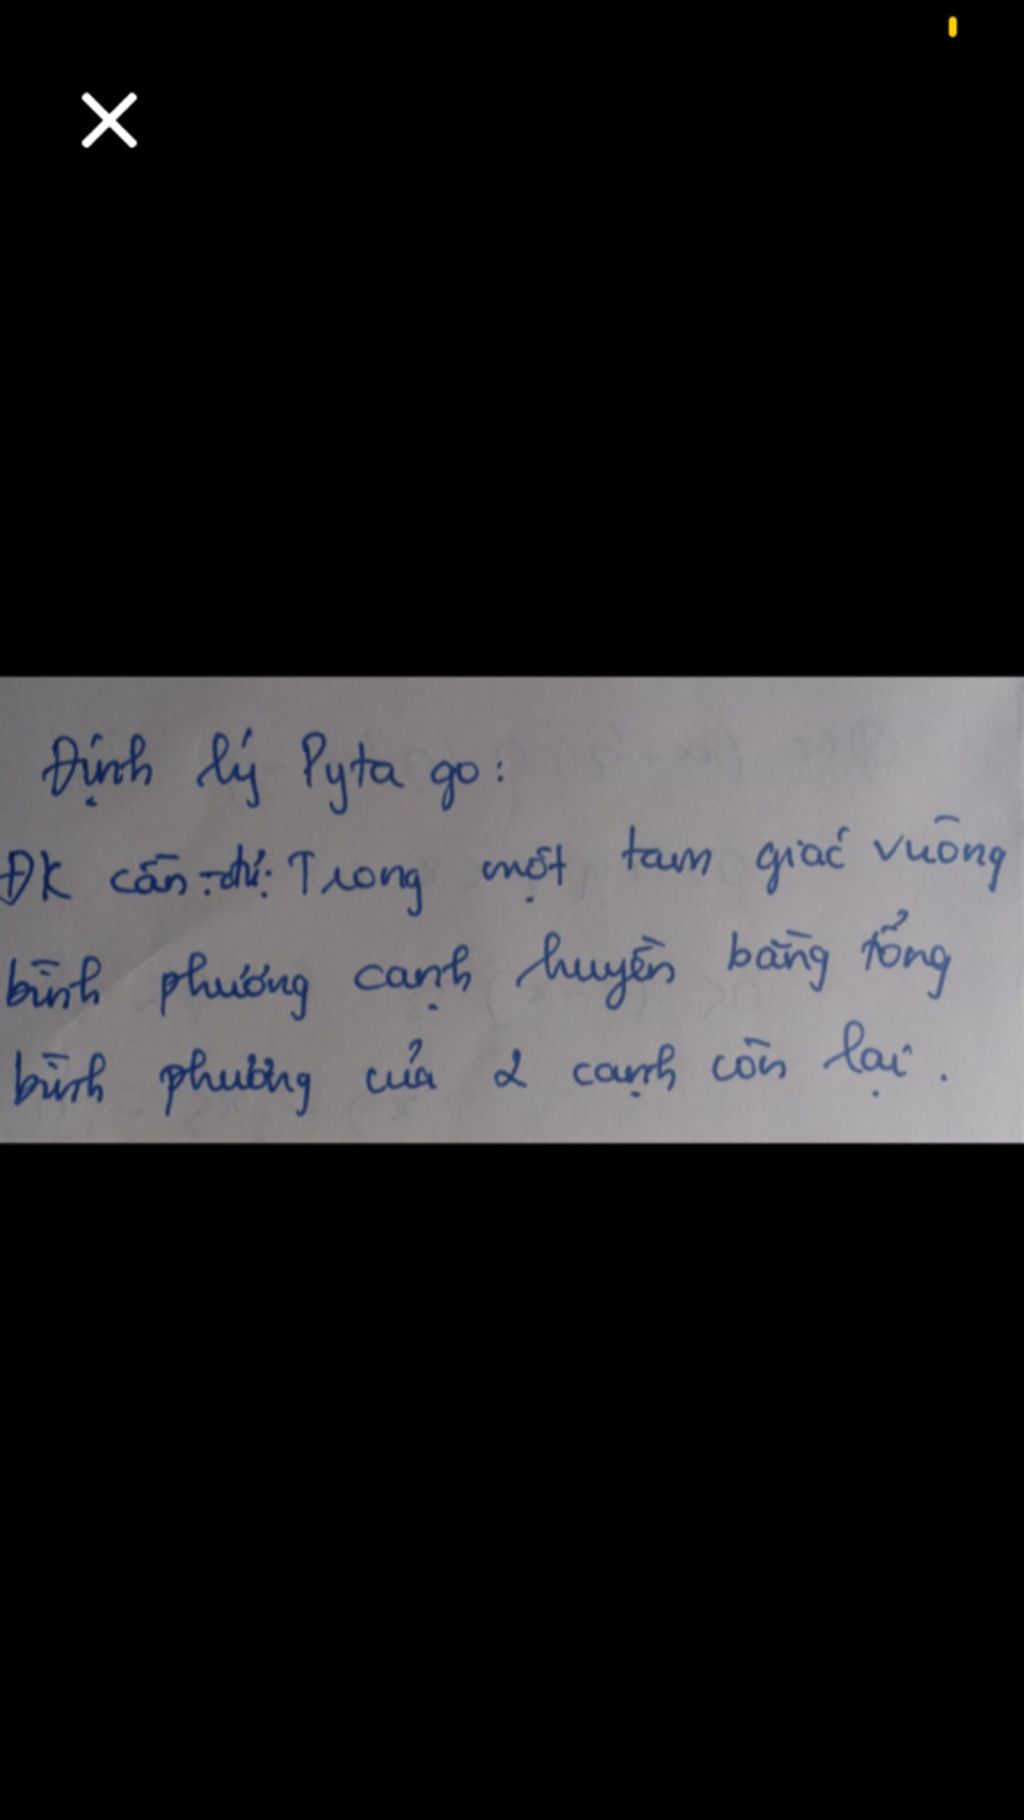 Định lý Pyta go:
ĐK cần: Trong một tam giác vuông
bình phương cạnh huyền bằng tổng
bình phương của 2 cạnh còn lại.